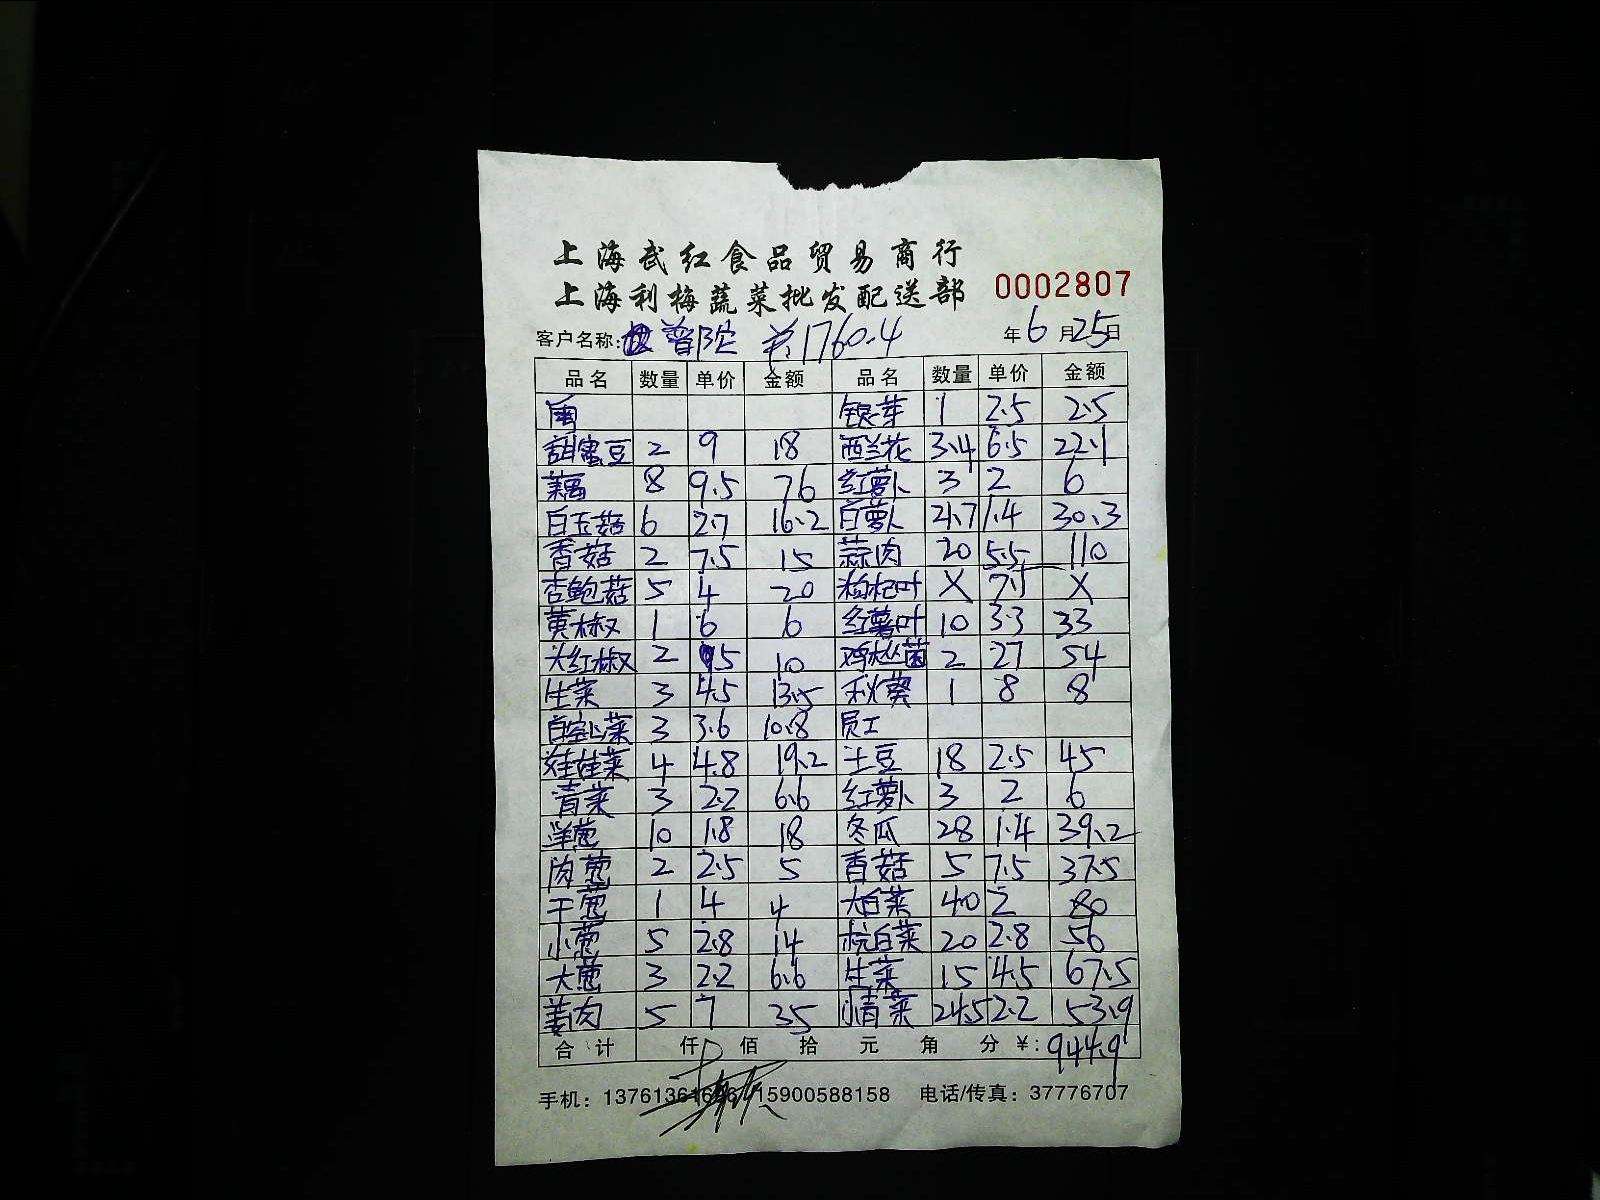 上海武红食品贸易商行
上海利梅蔬菜批发配送部
0002807
客户名称: 普陀 共1760.4 年6月25日
品名 数量 单价 金额 品名 数量 单价 金额
银芽 1 2.5 2.5
甜蜜豆 2 9 18 西兰花 3.4 6.5 22.1
藕 8 9.5 76 红萝卜 3 2 6
白玉菇 6 2.7 16.2 白萝卜 21.7 1.4 30.3
香菇 2 7.5 15 蒜肉 20 5.5 110
杏鲍菇 5 4 20 枸杞叶 X 7.5 X
黄椒 1 6 6 红薯叶 10 3.3 33
大红椒 2 5 10 鸡枞菌 2 27 54
生菜 3 4.5 13.5 秋葵 1 8 8
白空心菜 3 3.6 10.8 员工
娃娃菜 4 4.8 19.2 土豆 18 2.5 45
青菜 3 2.2 6.6 红萝卜 3 2 6
洋葱 10 1.8 18 冬瓜 28 1.4 39.2
肉葱 2 2.5 5 香菇 5 7.5 37.5
干葱 1 4 4 大白菜 40 2 80
小葱 5 2.8 14 杭白菜 20 2.8 56
大葱 3 2.2 6.6 生菜 15 4.5 67.5
姜肉 5 7 35 青菜 24.5 2.2 53.9
合计 仟 佰 拾 元 角 分 ¥: 944.9
手机: 15900588158 电话/传真: 37776707